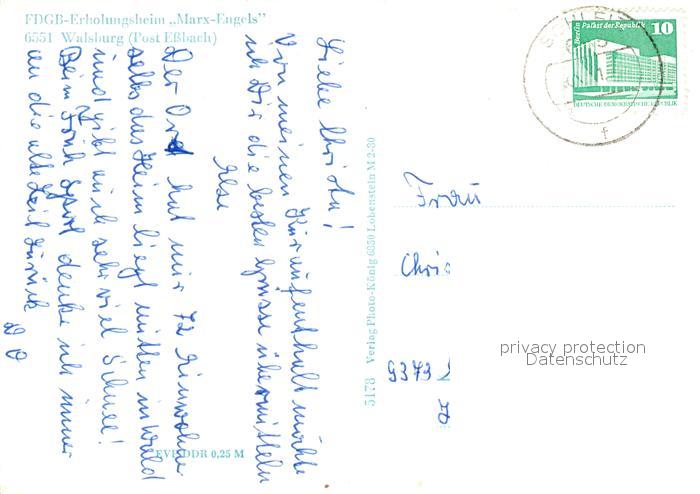 FDGB-Erholungsheim „Marx-Engels”
6551 Walsburg (Post Eßbach)
Liebe Christa!
Von meinen Kuraufenthalt möchte
ich Dir die besten Grüsse übermitteln
Der Ort hat nur 72 Einwohner
selbst das Heim liegt mitten im Wald
und gibt auch sehr viel Schnee!
Beim Früh Sport denke ich immer
an die alte Zeit zurück
EVP DDR 0,25 M
5178 Verlag Photo-König 6850 Lobenstein M 2-80
SCHLEIZ
f
Berlin Palast der Republik 10
DEUTSCHE DEMOKRATISCHE REPUBLIK
Frau
Chris
9373
privacy protection
Datenschutz